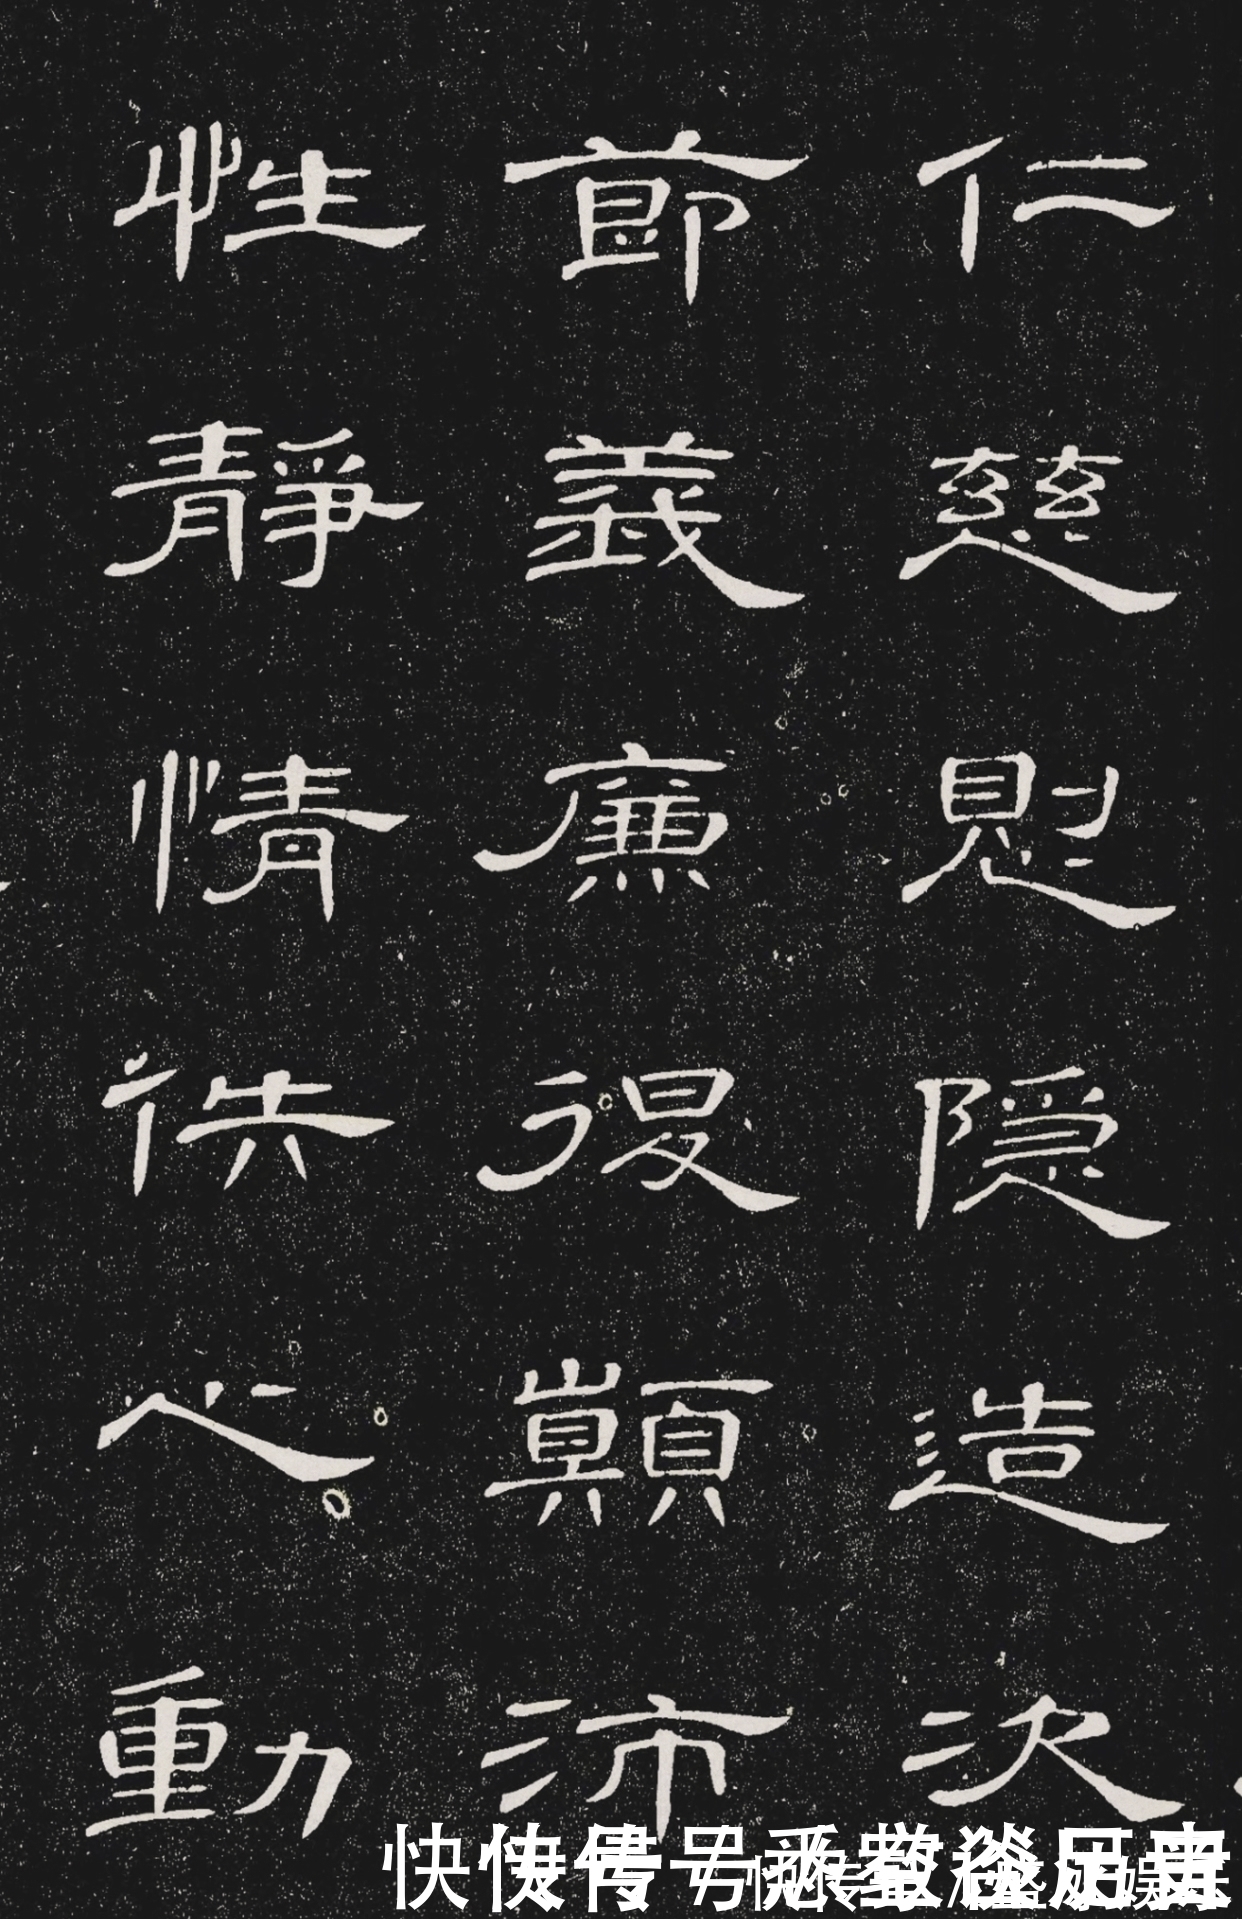 仁慈惻隱造次
節義廉退顛沛
性靜情佚心動
快传号/